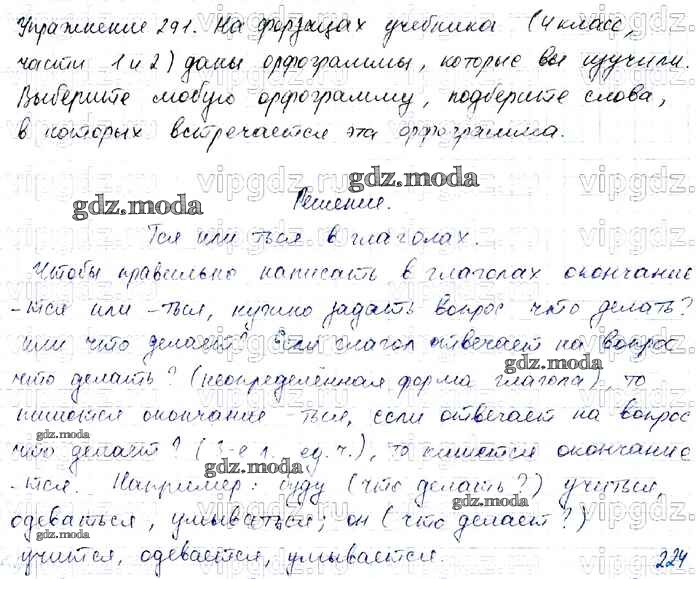 Упражнение 291. На форзацах учебника (4 класс,
части 1 и 2) даны орфограммы, которые вы изучили.
Выберите любую орфограмму, подберите слова,
в которых встречается эта орфограмма.
gdz.moda
gdz.moda
Решение.
Тся или ться в глаголах.
Чтобы правильно написать в глаголах окончание
-тся или -ться, нужно задать вопрос что делать?
или что делает? Если глагол отвечает на вопрос
gdz.moda
что делать? (неопределённая форма глагола), то
пишется окончание ться, если отвечает на вопрос
gdz.moda
что делает? (3-е л. ед. ч.), то пишется окончание
gdz.moda
-тся. Например: буду (что делать?) учиться,
gdz.moda
одеваться, умываться; он (что делает?)
gdz.moda
учится, одевается, умывается.
224